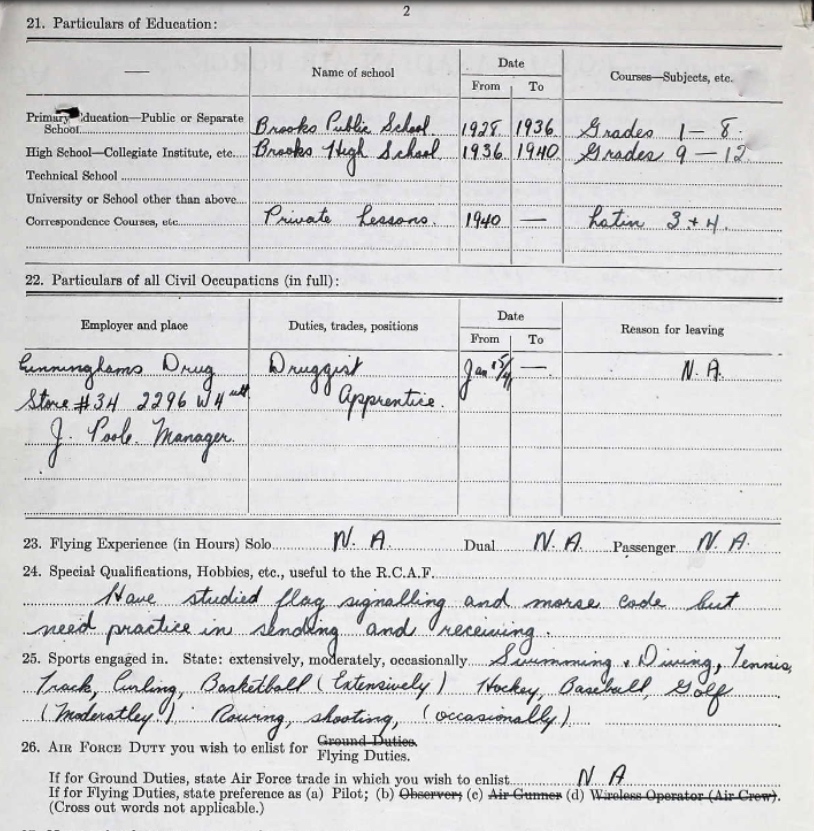 2
21. Particulars of Education:
— Name of school Date Courses—Subjects, etc.
From To
Primary Education—Public or Separate School Brooks Public School 1928 1936 Grades 1 – 8.
High School—Collegiate Institute, etc. Brooks High School 1936 1940 Grades 9 – 12
Technical School
University or School other than above
Correspondence Courses, etc. Private Lessons. 1940 — Latin 3 + 4.
22. Particulars of all Civil Occupations (in full):
Employer and place Duties, trades, positions Date Reason for leaving
From To
Cunninghams Drug Druggist Jan 15/41 — N. A.
Store #34 2296 W 4 Apprentice.
J. Poole. Manager.
23. Flying Experience (in Hours) Solo N. A. Dual N. A. Passenger N. A.
24. Special Qualifications, Hobbies, etc., useful to the R.C.A.F.
Have studied flag signalling and morse code but
need practice in sending and receiving.
25. Sports engaged in. State: extensively, moderately, occasionally Swimming & Diving, Tennis,
Track, Curling, Basketball (Extensively) Hockey, Baseball, Golf
(Moderatley.) Rowing, shooting, (occasionally)
26. AIR FORCE DUTY you wish to enlist for Ground Duties.
Flying Duties.
If for Ground Duties, state Air Force trade in which you wish to enlist N A
If for Flying Duties, state preference as (a) Pilot; (b) Observer; (c) Air Gunner (d) Wireless Operator (Air Crew).
(Cross out words not applicable.)